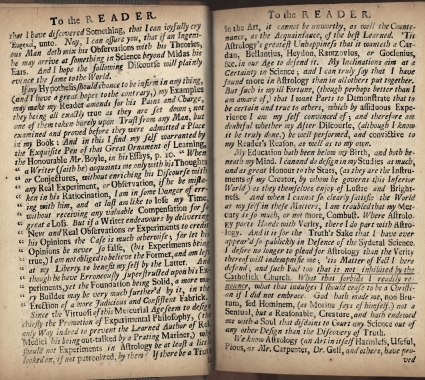 To the READER.
that I have discovered Something, that I can joyfully cry
Ἕυρηκα, unto. Now, I can assure you, that if an Ingeni-
ous Man doth mix his Observations with his Theories,
he may arrive at something in Science beyond Midas his
Ears. And I hope the following Discourse will plainly
evince the same to the World.
If my Hypothesis should chance to be infirm in any thing,
(and I have a great hope to the contrary,) my Examples
may make my Reader amends for his Pains and Charge,
they being all exactly true as they are set down; not
one of them taken barely upon Trust from any Man, but
examined and proved before they were admitted a Place
in my Book: And in this I find my self warranted by
the Exquisite Pen of that Great Ornament of Learning,
the Honourable Mr. Boyle, in his Essays, p. 10.
" a Writer (saith he) acquaints me only with his Thoughts
" or Conjectures, without enriching his Discourse with
" any Real Experiment, or Observation, if he be mista-
" ken in his Ratiocination, I am in some Danger of err-
" ing with him, and at least am like to lose my Time,
" without receiving any valuable Compensation for so
" great a Loss. But if a Writer endeavours by delivering
" New and Real Observations or Experiments to credit
" his Opinions the Case is much otherwise, for let his
" Opinions be never so false, (his Experiments being
" true,) I am not obliged to believe the Former, and am left
" at my Liberty to benefit my self by the Latter. And
" though he have Erroneously superstructed upon his Ex-
" periments, yet the Foundation being Solid, a more wa-
" ry Builder may be very much further'd by it, in the
" Erection of a more Judicious and Consistent Fabrick.
Since the Virtuosi of this Mercurial Age seem to design
chiefly the Promotion of Experimental Philosophy, (the
only Way indeed to prevent the Learned Author of Religio
Medici his being out-talked by a Prating Mariner,)
should not Experiments in Astrology be at least a little
looked on, if not patronized, by them? If there be a Truth
To the READER.
in the Art, it cannot be unworthy, as well the Counte-
nance, as the Acquaintance, of the best Learned. 'Tis
Astrology's greatest Unhappiness that it wanteth a Car-
dan, Bellantius, Heydon, Rantzovius, or Goclenius,
&c. in our Age to defend it. My Inclinations aim at a
Certainty in Science; and I can truly say that I have
found more in Astrology than in all others put together.
But such is my ill Fortune, (though perhaps better than I
am aware of,) that I want Parts to Demonstrate that to
be certain and true to others, which by assiduous Expe-
rience I am my self convinced of; and therefore am
doubtful whether my After Discourse, (although I know
it be truly done,) be well performed, and convictive to
my Reader's Reason, as well as to my own.
My Education hath been below my Birth, and both be-
neath my Mind. I can and do design in my Studies as much,
and as great Honour to the Stars, (as they are the Instru-
ments of my Creator, by whom he governs this Inferior
World) as they themselves enjoy of Lustre and Bright-
ness. And when I cannot so clearly satisfie the World
at my self in these Matters, I am troubled that my Mer-
cury is so much, or not more, Combust. Where Astrolo-
gy parts Hands with Verity, there I do part with Astro-
logy. And it is for the Truth's Sake that I have ever
appear'd so publickly in Defence of the Sydereal Science.
I desire no longer to plead for Astrology than the Verity
thereof will indempnifie me, 'tis Matter of Fact I here
defend, and such Fact too that is not inhibited by the
Catholick Church. What that forbids I readily re-
nounce, what that indulges I should cease to be a Christi-
an if I did not embrace. God hath made me, non Bru-
tum, sed Hominem, (as Morine says of himself,) not a
Sensual, but a Reasonable, Creature, and hath endowed
me with a Soul that disdains to Court any Science out of
any other Design than the Discovery of Truth.
We know Astrology (an Art in it self Harmless, Useful,
Pious, as Mr. Carpenter, Dr. Gell, and others, have pro-
ved